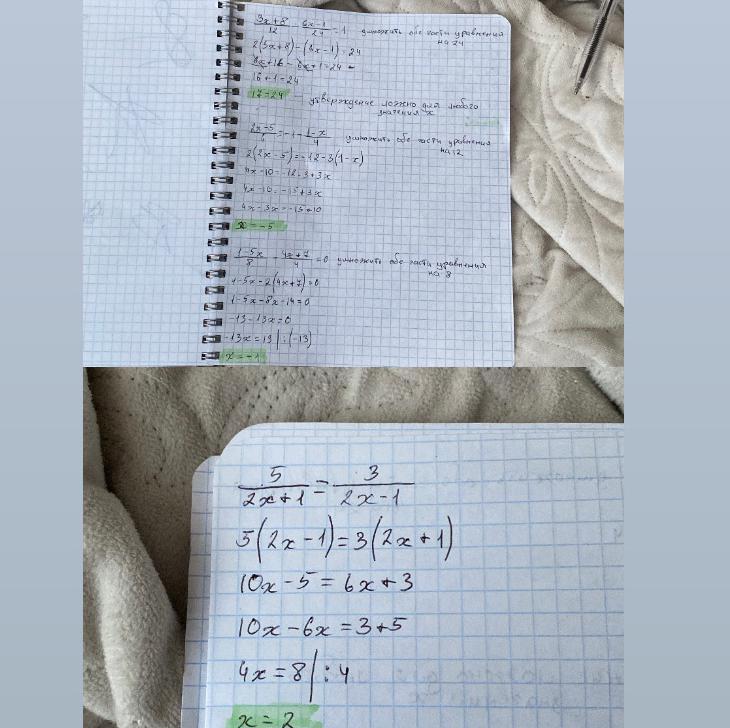 3x+8/12 - 6x-1/24 = 1 умножить обе части уравнения
на 24
2(3x+8)-(6x-1)=24
6x+16-6x+1=24
16+1=24
17=24 утверждение ложно для любого
значения x
2x-5/6 = -1 - 1-x/4 умножить обе части уравнения
на 12
2(2x-5)=-12-3(1-x)
4x-10=-12-3+3x
4x-10=-15+3x
4x-3x=-15+10
x=-5
1-5x/8 - 4x+7/4 = 0 умножить обе части уравнения
на 8
1-5x-2(4x+7)=0
1-5x-8x-14=0
-13-13x=0
-13x=13 |:(-13)
x=-1
5/2x+1 = 3/2x-1
5(2x-1)=3(2x+1)
10x-5=6x+3
10x-6x=3+5
4x=8 |:4
x=2